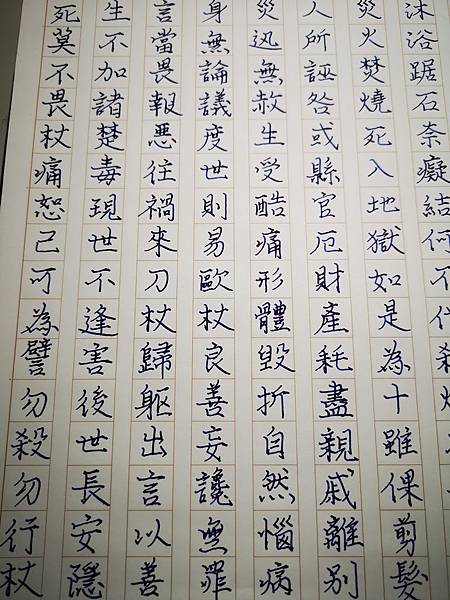 沐浴踞石奈癡結何不
災火焚燒死入地獄如是為十雖倮剪髮
人所誣咎或縣官厄財產耗盡親戚離別
災迅無赦生受酷痛形體毀折自然惱病
身無論議度世則易歐杖良善妄讒無罪
言當畏報惡往禍來刀杖歸軀出言以善
生不加諸楚毒現世不逢害後世長安隱
死莫不畏杖痛恕己可為譬勿殺勿行杖